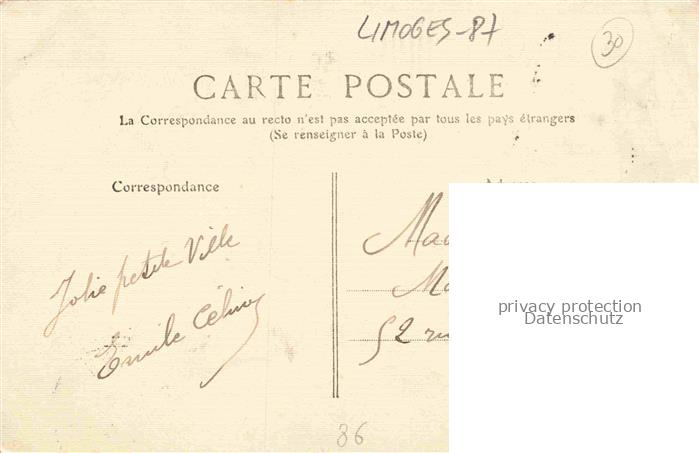 LIMOGES-87
30
CARTE POSTALE
La Correspondance au recto n'est pas acceptée par tous les pays étrangers
(Se renseigner à la Poste)
Correspondance
Jolie petite Ville
Emile
52
privacy protection
Datenschutz
86